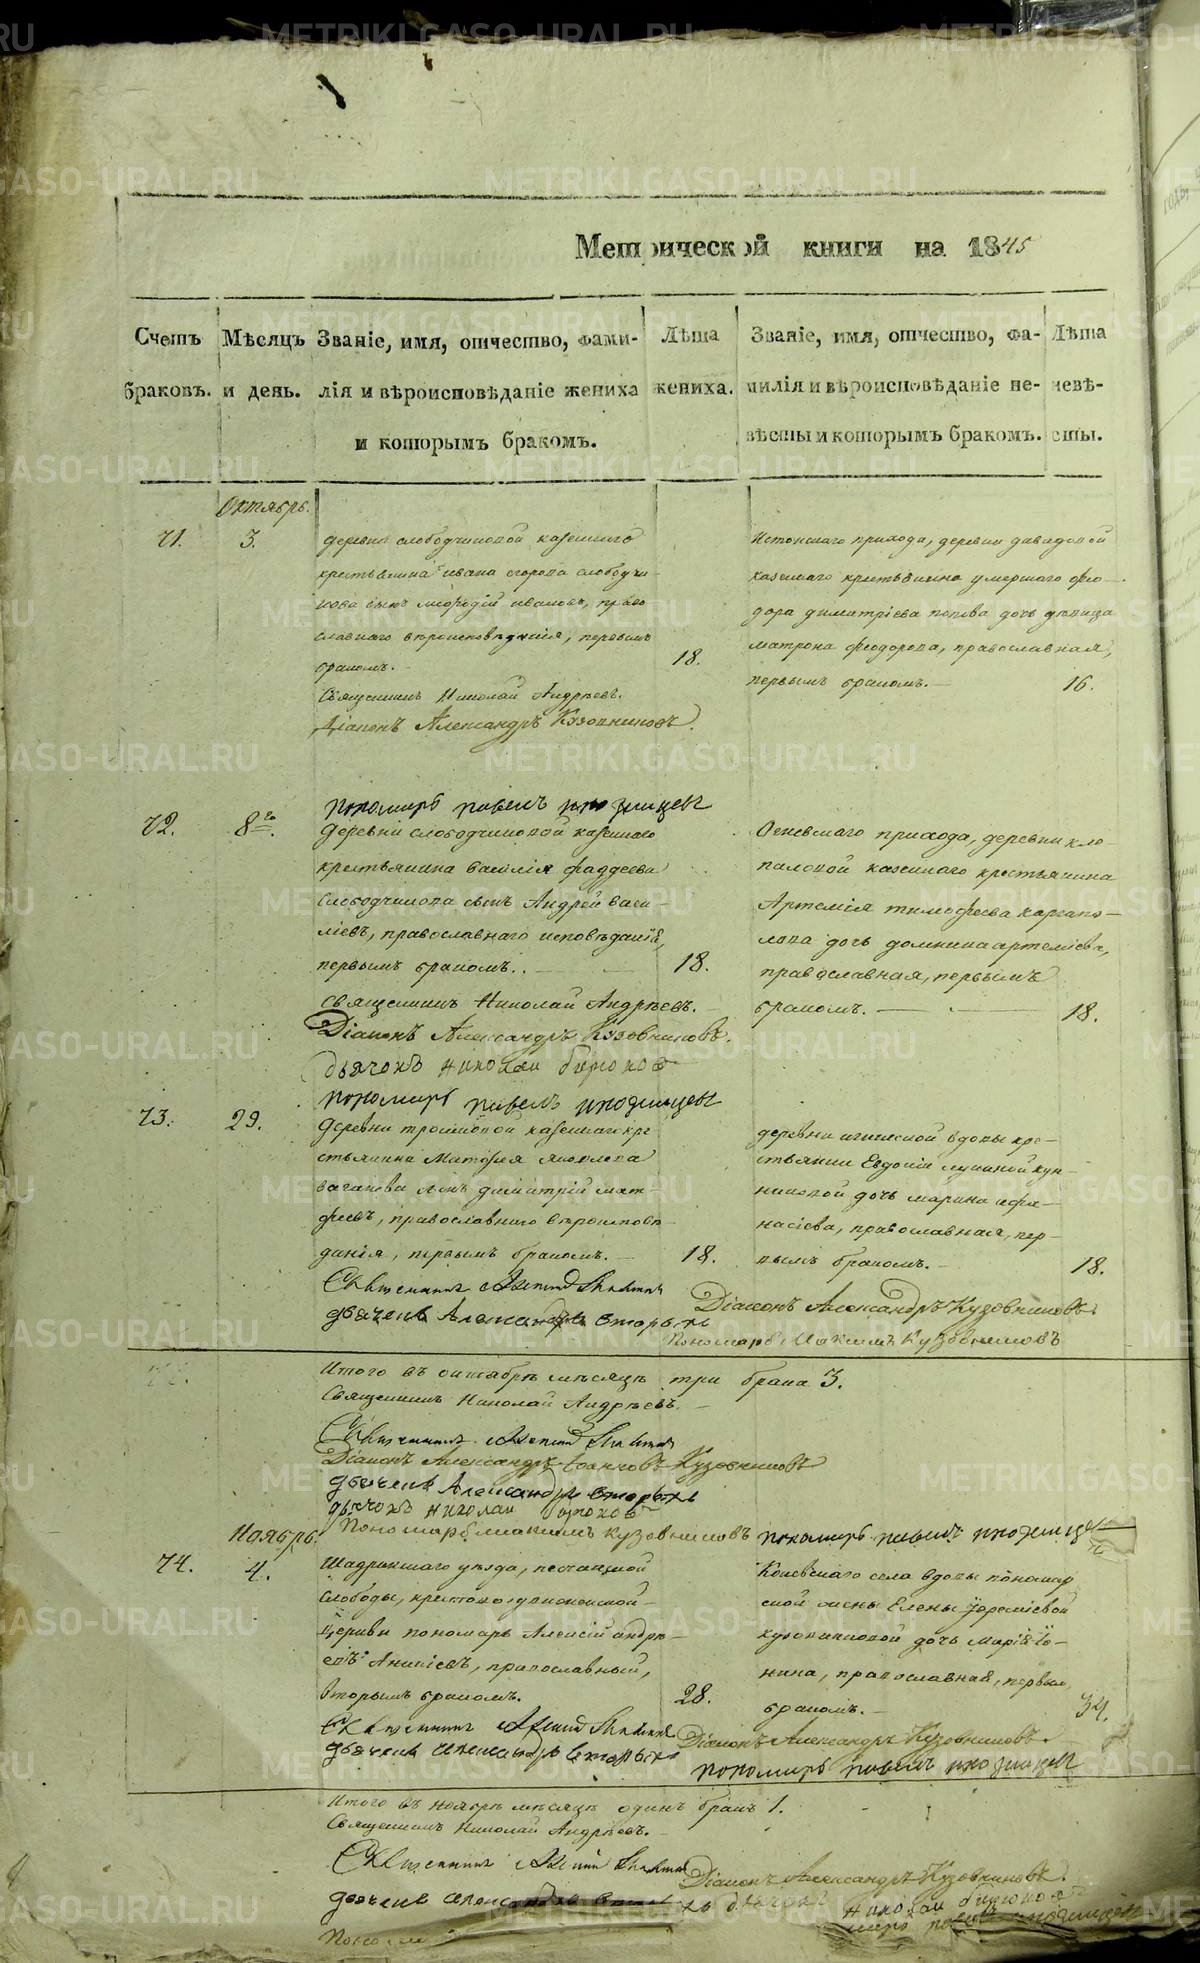 Метрической книги на 1845
Счетъ браковъ.
Мѣсяцъ и день.
Званіе, имя, отчество, фами-
лія и вѣроисповѣданіе жениха
и которымъ бракомъ.
Лѣта
жениха.
Званіе, имя, отчество, фа-
милія и вѣроисповѣданіе не-
вѣсты и которымъ бракомъ.
Лѣта
невѣ-
сты.
Октябрь.
71.
3.
деревни слободчиковой казеннаго
крестьянина Ивана Егорова слободчи-
кова сынъ Иванов, право
славнаго вѣроисповѣданія, первымъ
бракомъ.
18.
Священникъ Николай Андрѣевъ.
Діаконъ Александръ Кузовниковъ.
прихода, деревни давыдовой
казеннаго крестьянина умершаго Фео-
дора Димитріева попова дочь дѣвица
матрона феодорова, православная,
первымъ бракомъ.
16.
пономарь павелъ иноземцевъ
72.
8го.
деревни слободчиковой казеннаго
крестьянина Василія Фаддеева
Слободчикова сынъ Андрей Васи-
ліевъ, православнаго исповѣданія,
первымъ бракомъ.
18.
Священникъ Николай Андрѣевъ.
Діаконъ Александръ Кузовниковъ.
дьячокъ николаи бирюков
пономарь павелъ иноземцевъ
Огневскаго прихода, деревни кло-
паловой казеннаго крестьянина
Артемія тимофеева каргапо-
лова дочь домнина артеміева,
православная, первымъ
бракомъ.
18.
73.
29.
деревни казеннаго кре
стьянина Матфея Яковлева
ваганова сынъ димитрій мат-
феевъ, православнаго вѣроисповѣ-
данія, первымъ бракомъ.
18.
Священникъ
дьячекъ Александръ Вторыхъ
деревни вдовы кре-
стьянки Евдокіи
дочь марина афа-
насіева, православная, пер-
вымъ бракомъ.
18.
Діаконъ Александръ Кузовниковъ.
Пономарь Максимъ Кузовниковъ
Итого въ октябрѣ мѣсяцѣ три брака 3.
Священникъ Николай Андрѣевъ.
Священникъ
Діаконъ Александръ Іоанновъ Кузовниковъ
дьячекъ Александръ Вторыхъ
дьячокъ николаи бирюков
Пономарь максимъ кузовниковъ пономарь павелъ иноземцевъ
Ноябрь.
74.
4.
Шадринскаго уѣзда, песчанской
слободы,
церкви пономарь Алексій андрѣ-
евъ Аникіевъ, православный,
вторымъ бракомъ.
28.
Священникъ
дьячекъ александръ вторыхъ
Коневскаго села вдовы пономар
ской жены Елены Іереміевой
кузовниковой дочь Марія Іо-
нина, православная, первым
бракомъ.
34.
Діаконъ Александръ Кузовниковъ.
пономарь павелъ иноземцевъ
Итого въ ноябрѣ мѣсяцѣ одинъ бракъ 1.
Священникъ Николай Андрѣевъ.
Священникъ
Діаконъ Александръ Кузовниковъ.
дьячекъ александръ
дьячокъ николаи бирюков
METRIKI.GASO-URAL.RU